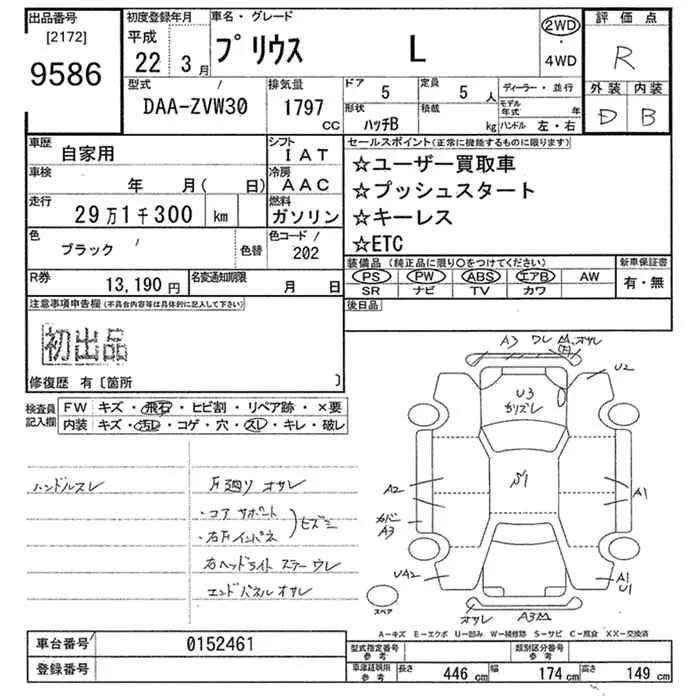 出品番号
[2172]
9586
初度登録年月
平成
22 3月
車名・グレード
プリウス L
2WD
4WD
評価点
R
外装 内装
D B
型式 /
DAA-ZVW30
排気量
1797 CC
ドア 5
定員 5人
形状 ハッチB
積載 kg
ディーラー・並行
モデル年式 年
ハンドル 左・右
車歴 自家用
シフト IAT
車検 年 月( 日)
冷房 AAC
走行 29万1千300 km
燃料 ガソリン
色 ブラック /
色替
色コード /
202
R券 13,190円
名変通知期限 月 日
セールスポイント(正常に機能するものに限ります)
☆ユーザー買取車
☆プッシュスタート
☆キーレス
☆ETC
装備品 (純正品に限り〇をつけてください)
新車保証書
PS PW ABS エアB AW
有・無
SR ナビ TV カワ
後日品
注意事項申告欄(不具合内容等は具体的に記入して下さい)
初出品
修復歴 有〔箇所 〕
検査員記入欄
FW キズ・飛石・ヒビ割・リペア跡・×要
内装 キズ・汚レ・コゲ・穴・スレ・キレ・破レ
ハンドルスレ
・コア サポート
・右F インパネ
ヒズミ
右ヘッドライト ステー ウレ
エンドパネル オサレ
A3 ウレ
オサレ
U2
U3
A2
A1
カバー
A3
UA2
A1
U1
スペア
オサレ
A-キズ E-エクボ U-凹み W-補修跡 S-サビ C-腐食 XX-交換済
車台番号 0152461
登録番号
型式指定番号 参考
類別区分番号 参考
車庫証明用 参考 長さ 446cm 幅 174cm 高さ 149cm